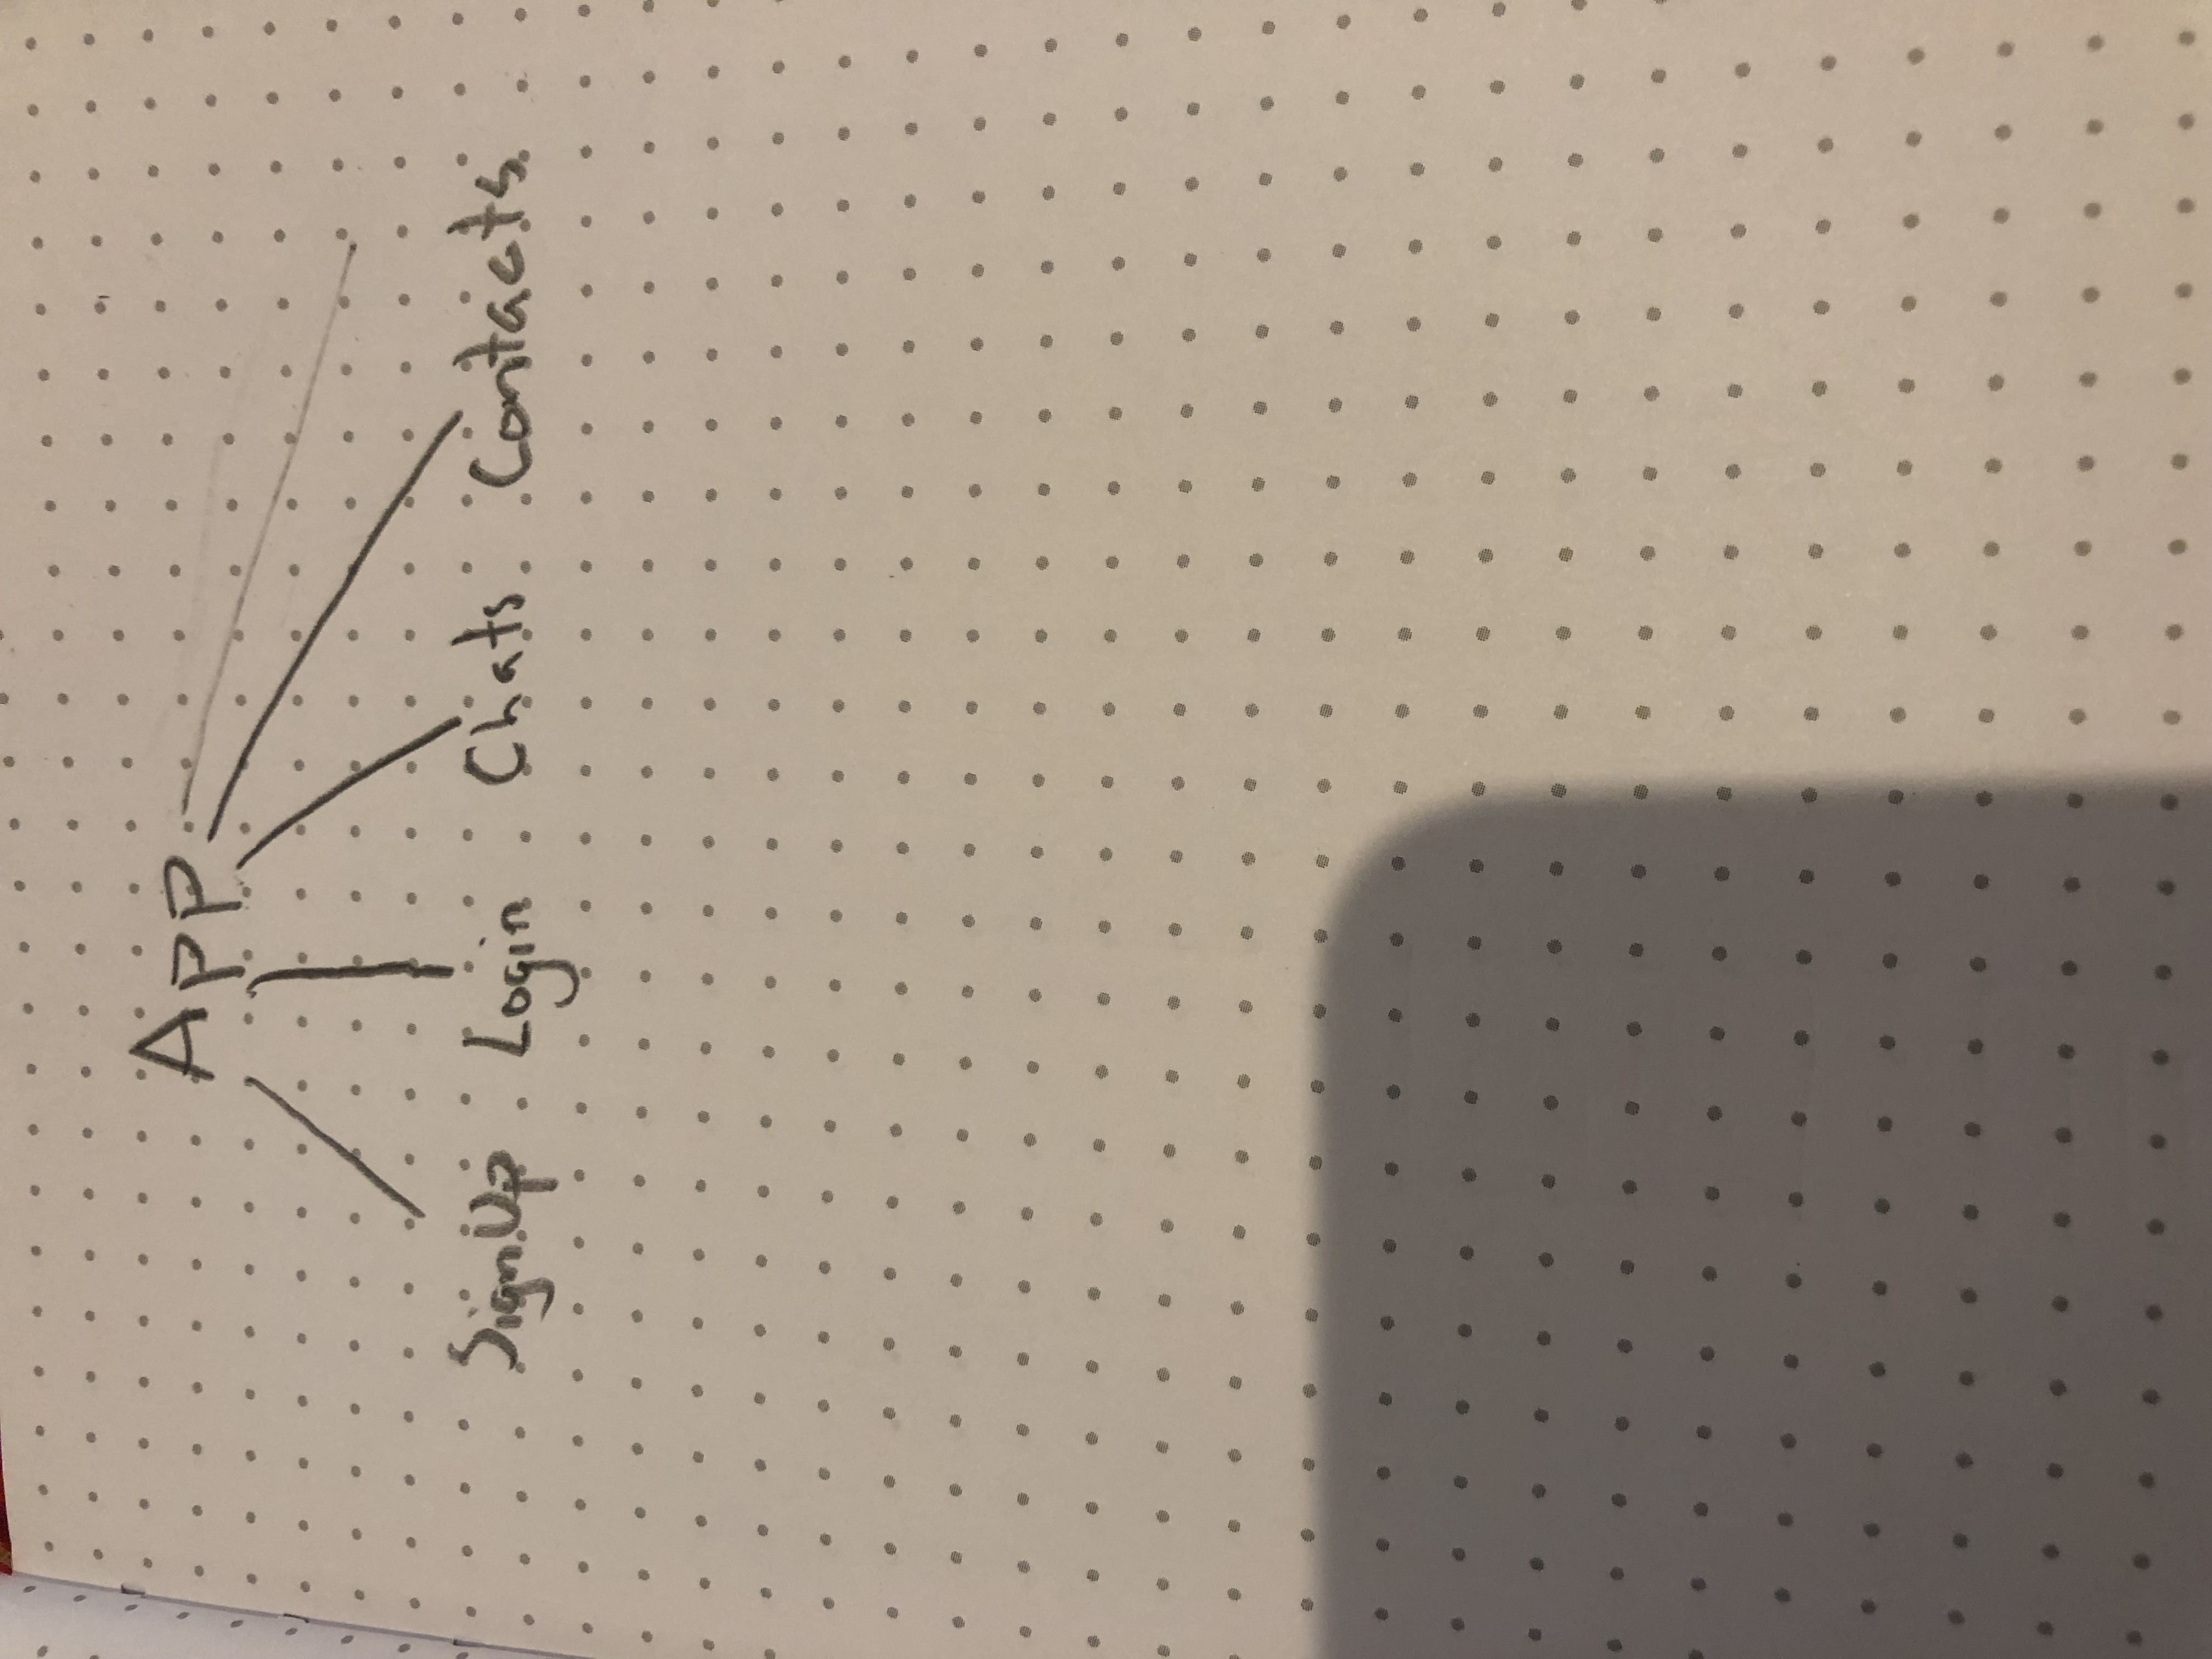 App
SignUp Login Chats Contacts